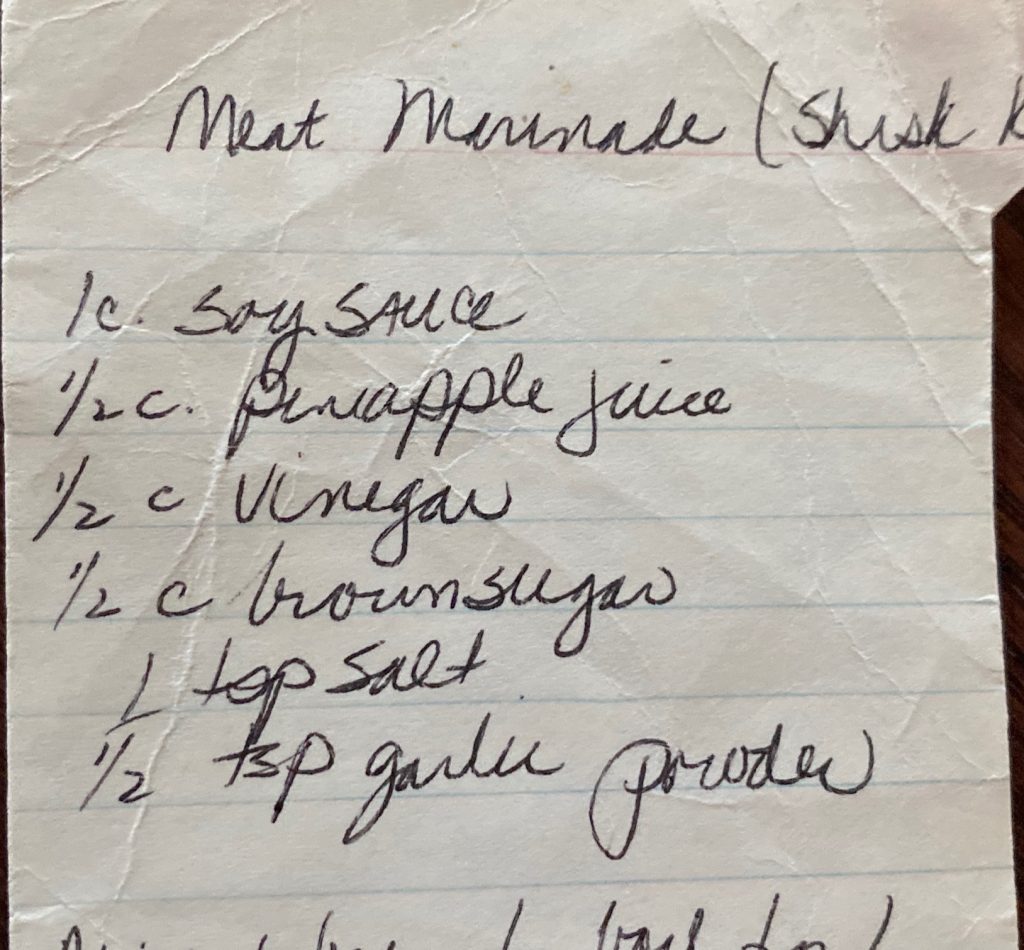 Meat Marinade (Shish K
1c. Soy Sauce
1/2 c. pineapple juice
1/2 c Vinegar
1/2 c brown sugar
1 tsp Salt
1/2 tsp garlic powder